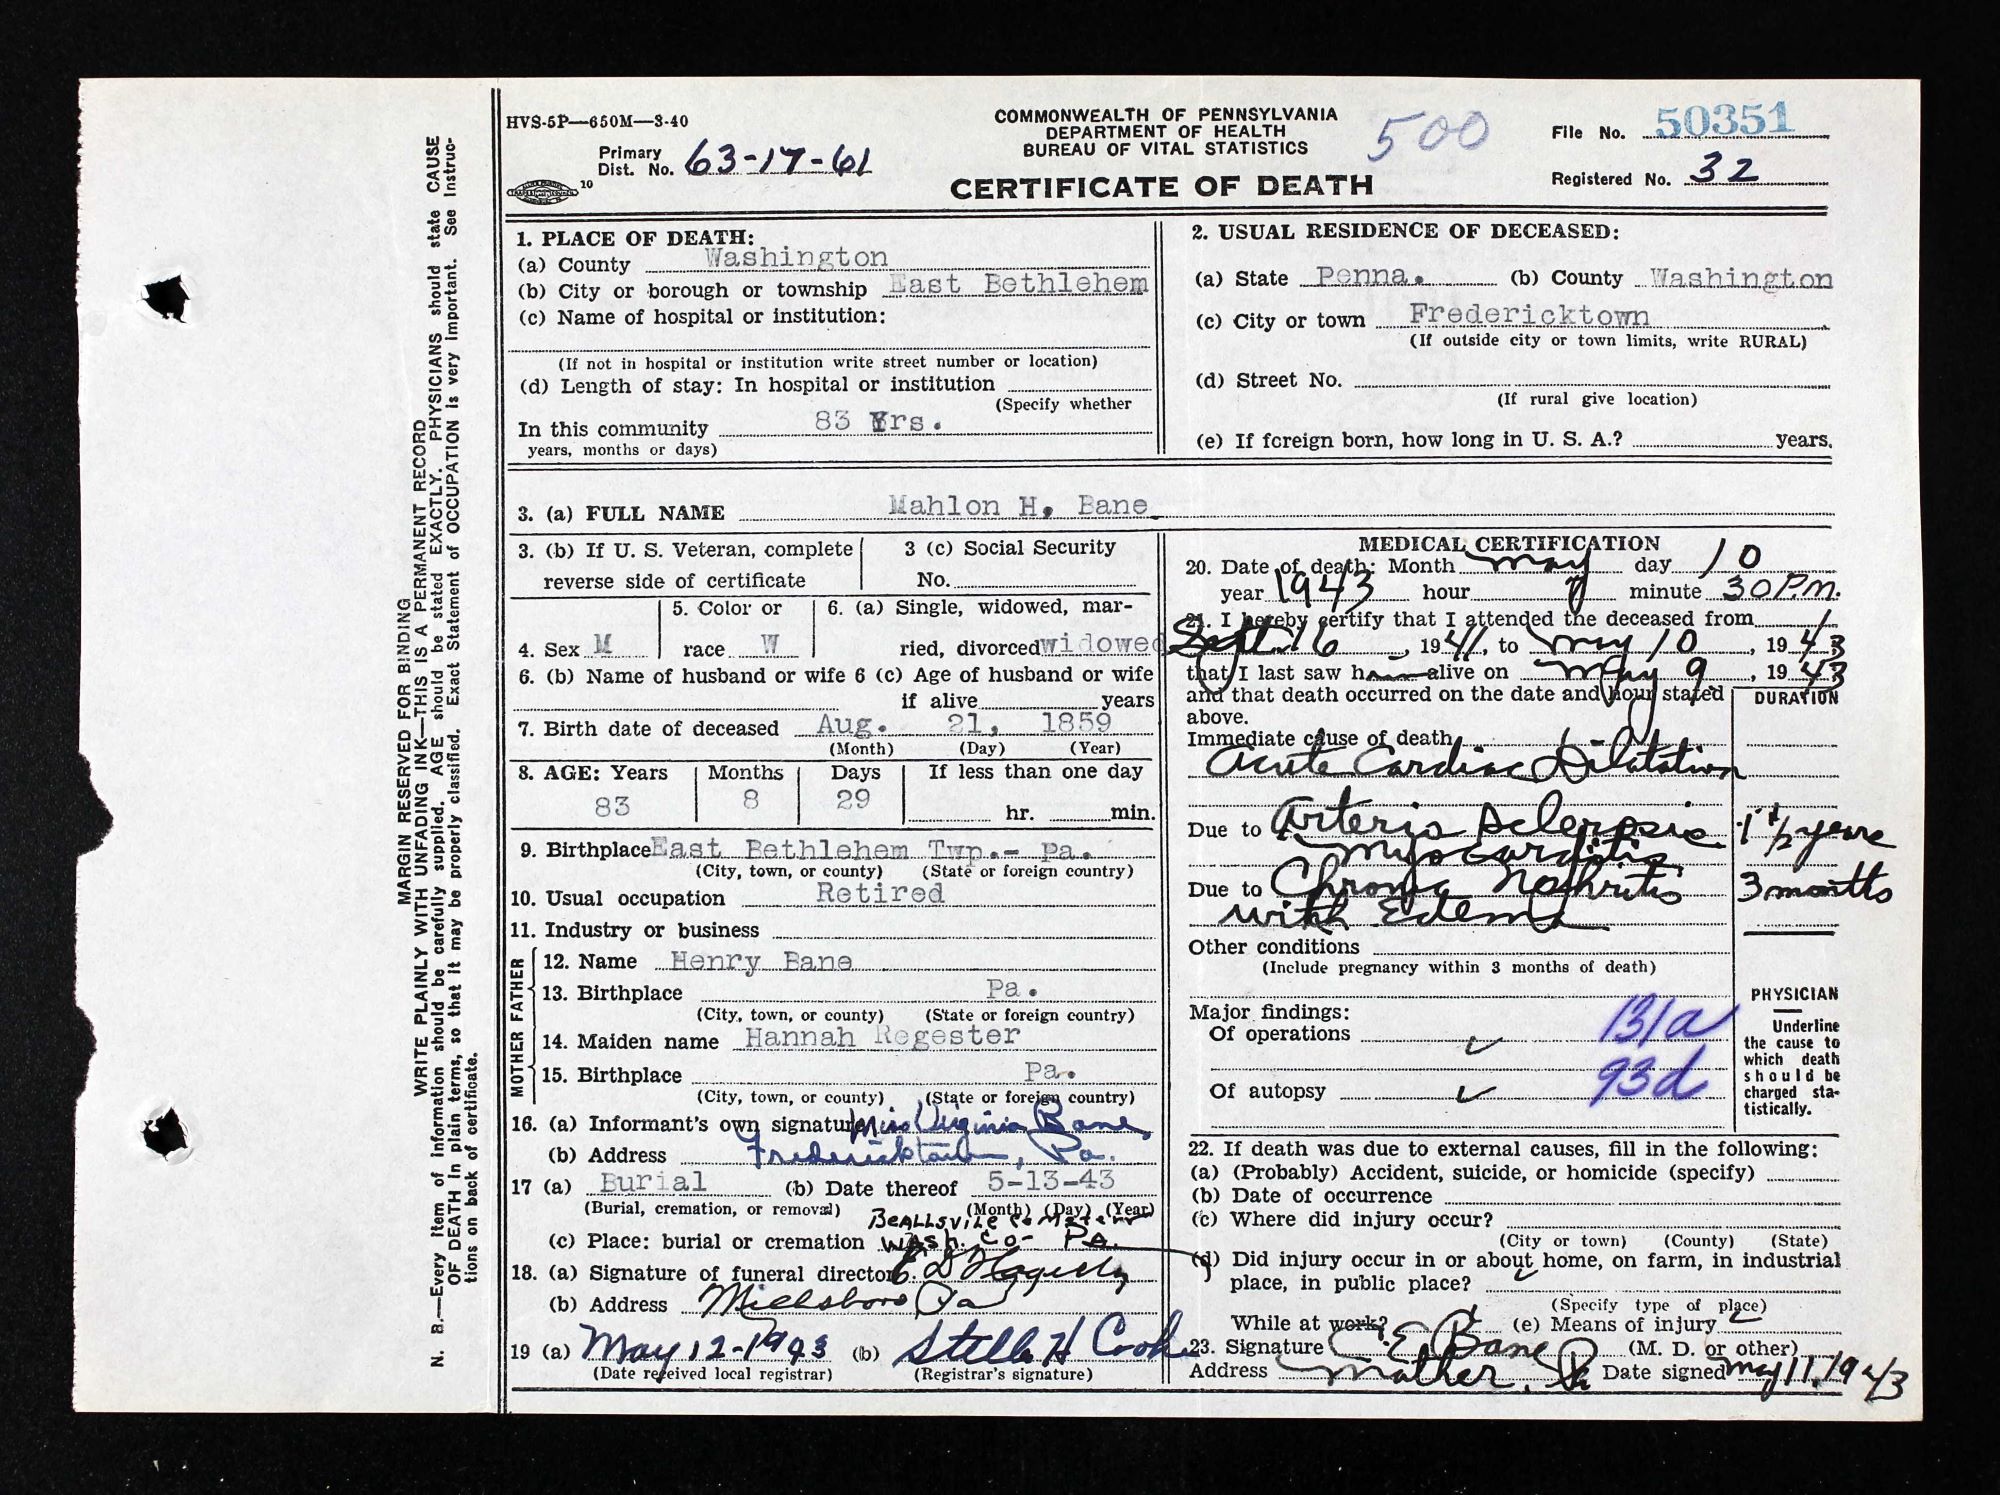 HVS-5P—650M—3-40
COMMONWEALTH OF PENNSYLVANIA
DEPARTMENT OF HEALTH
BUREAU OF VITAL STATISTICS
CERTIFICATE OF DEATH
500
File No. 50351
Registered No. 32
Primary
Dist. No. 63-17-61
10
MARGIN RESERVED FOR BINDING
WRITE PLAINLY WITH UNFADING INK—THIS IS A PERMANENT RECORD
N. B.—Every item of information should be carefully supplied. AGE should be stated EXACTLY. PHYSICIANS should state CAUSE
OF DEATH in plain terms, so that it may be properly classified. Exact Statement of OCCUPATION is very important. See Instruc-
tions on back of certificate.
1. PLACE OF DEATH:
(a) County Washington
(b) City or borough or township East Bethlehem
(c) Name of hospital or institution:
(If not in hospital or institution write street number or location)
(d) Length of stay: In hospital or institution
(Specify whether
In this community 83 Yrs.
years, months or days)
2. USUAL RESIDENCE OF DECEASED:
(a) State Penna. (b) County Washington
(c) City or town Fredericktown
(If outside city or town limits, write RURAL)
(d) Street No.
(If rural give location)
(e) If foreign born, how long in U. S. A.? years.
3. (a) FULL NAME Mahlon H. Bane
3. (b) If U. S. Veteran, complete
reverse side of certificate
3 (c) Social Security
No.
4. Sex M
5. Color or
race W
6. (a) Single, widowed, mar-
ried, divorced widowed
6. (b) Name of husband or wife 6 (c) Age of husband or wife
if alive years
7. Birth date of deceased Aug. 21, 1859
(Month) (Day) (Year)
8. AGE: Years Months Days If less than one day
83 8 29 hr. min.
9. Birthplace East Bethlehem Twp.- Pa.
(City, town, or county) (State or foreign country)
10. Usual occupation Retired
11. Industry or business
FATHER
12. Name Henry Bane
13. Birthplace Pa.
(City, town, or county) (State or foreign country)
MOTHER
14. Maiden name Hannah Regester
15. Birthplace Pa.
(City, town, or county) (State or foreign country)
16. (a) Informant's own signature Miss Virginia Bane
(b) Address Fredericktown, Pa.
17 (a) Burial (b) Date thereof 5-13-43
(Burial, cremation, or removal) (Month) (Day) (Year)
Beallsville Cemetery
(c) Place: burial or cremation Wash. Co- Pa.
18. (a) Signature of funeral director
(b) Address Millsboro Pa
19 (a) May 12-1943 (b) Stella H Cook
(Date received local registrar) (Registrar's signature)
MEDICAL CERTIFICATION
20. Date of death: Month May day 10
year 1943 hour minute 30 P.m.
21. I hereby certify that I attended the deceased from
Sept 16, 1941, to May 10, 1943
that I last saw him alive on May 9, 1943
and that death occurred on the date and hour stated
above.
DURATION
Immediate cause of death
Acute Cardiac Dilatation
Due to Arterio Sclerosis 1 1/2 years
Myocarditis
Due to Chronic Nephritis 3 months
with Edema
Other conditions
(Include pregnancy within 3 months of death)
Major findings:
Of operations 131a
Of autopsy 93d
PHYSICIAN
Underline
the cause to
which death
should be
charged sta-
tistically.
22. If death was due to external causes, fill in the following:
(a) (Probably) Accident, suicide, or homicide (specify)
(b) Date of occurrence
(c) Where did injury occur?
(City or town) (County) (State)
(d) Did injury occur in or about home, on farm, in industrial
place, in public place?
(Specify type of place)
While at work? (e) Means of injury
23. Signature C E Bane (M. D. or other)
Address Mather, Pa Date signed May 11, 1943